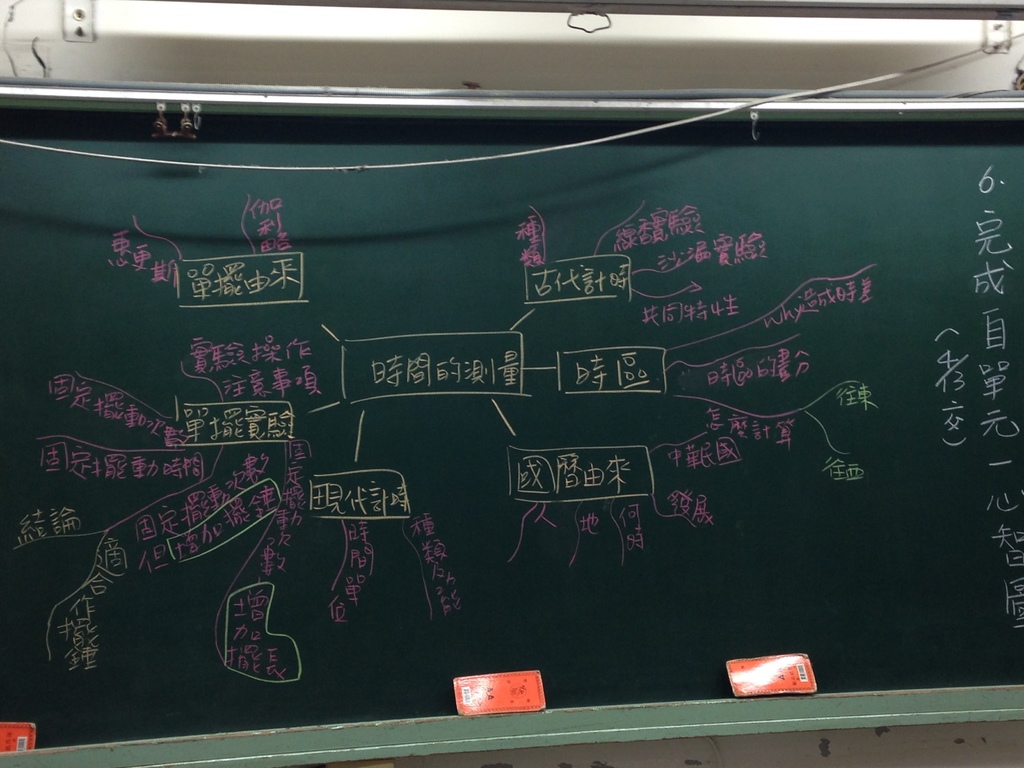 時間的測量
單擺由來
惠更斯
伽利略
古代計時
種類
線香實驗
沙漏實驗
共同特性
時區
why造成時差
時區的畫分
怎麼計算
往東
往西
國曆由來
中華民國
發展
人
地
何時
現代計時
時間單位
種類及功能
單擺實驗
實驗操作
注意事項
固定擺動次數
固定擺動時間
固定擺動次數
但增加擺錘
固定擺動次數
增加擺長
結論
適合作擺鐘
6.完成自單元一心智圖
(4/3交)